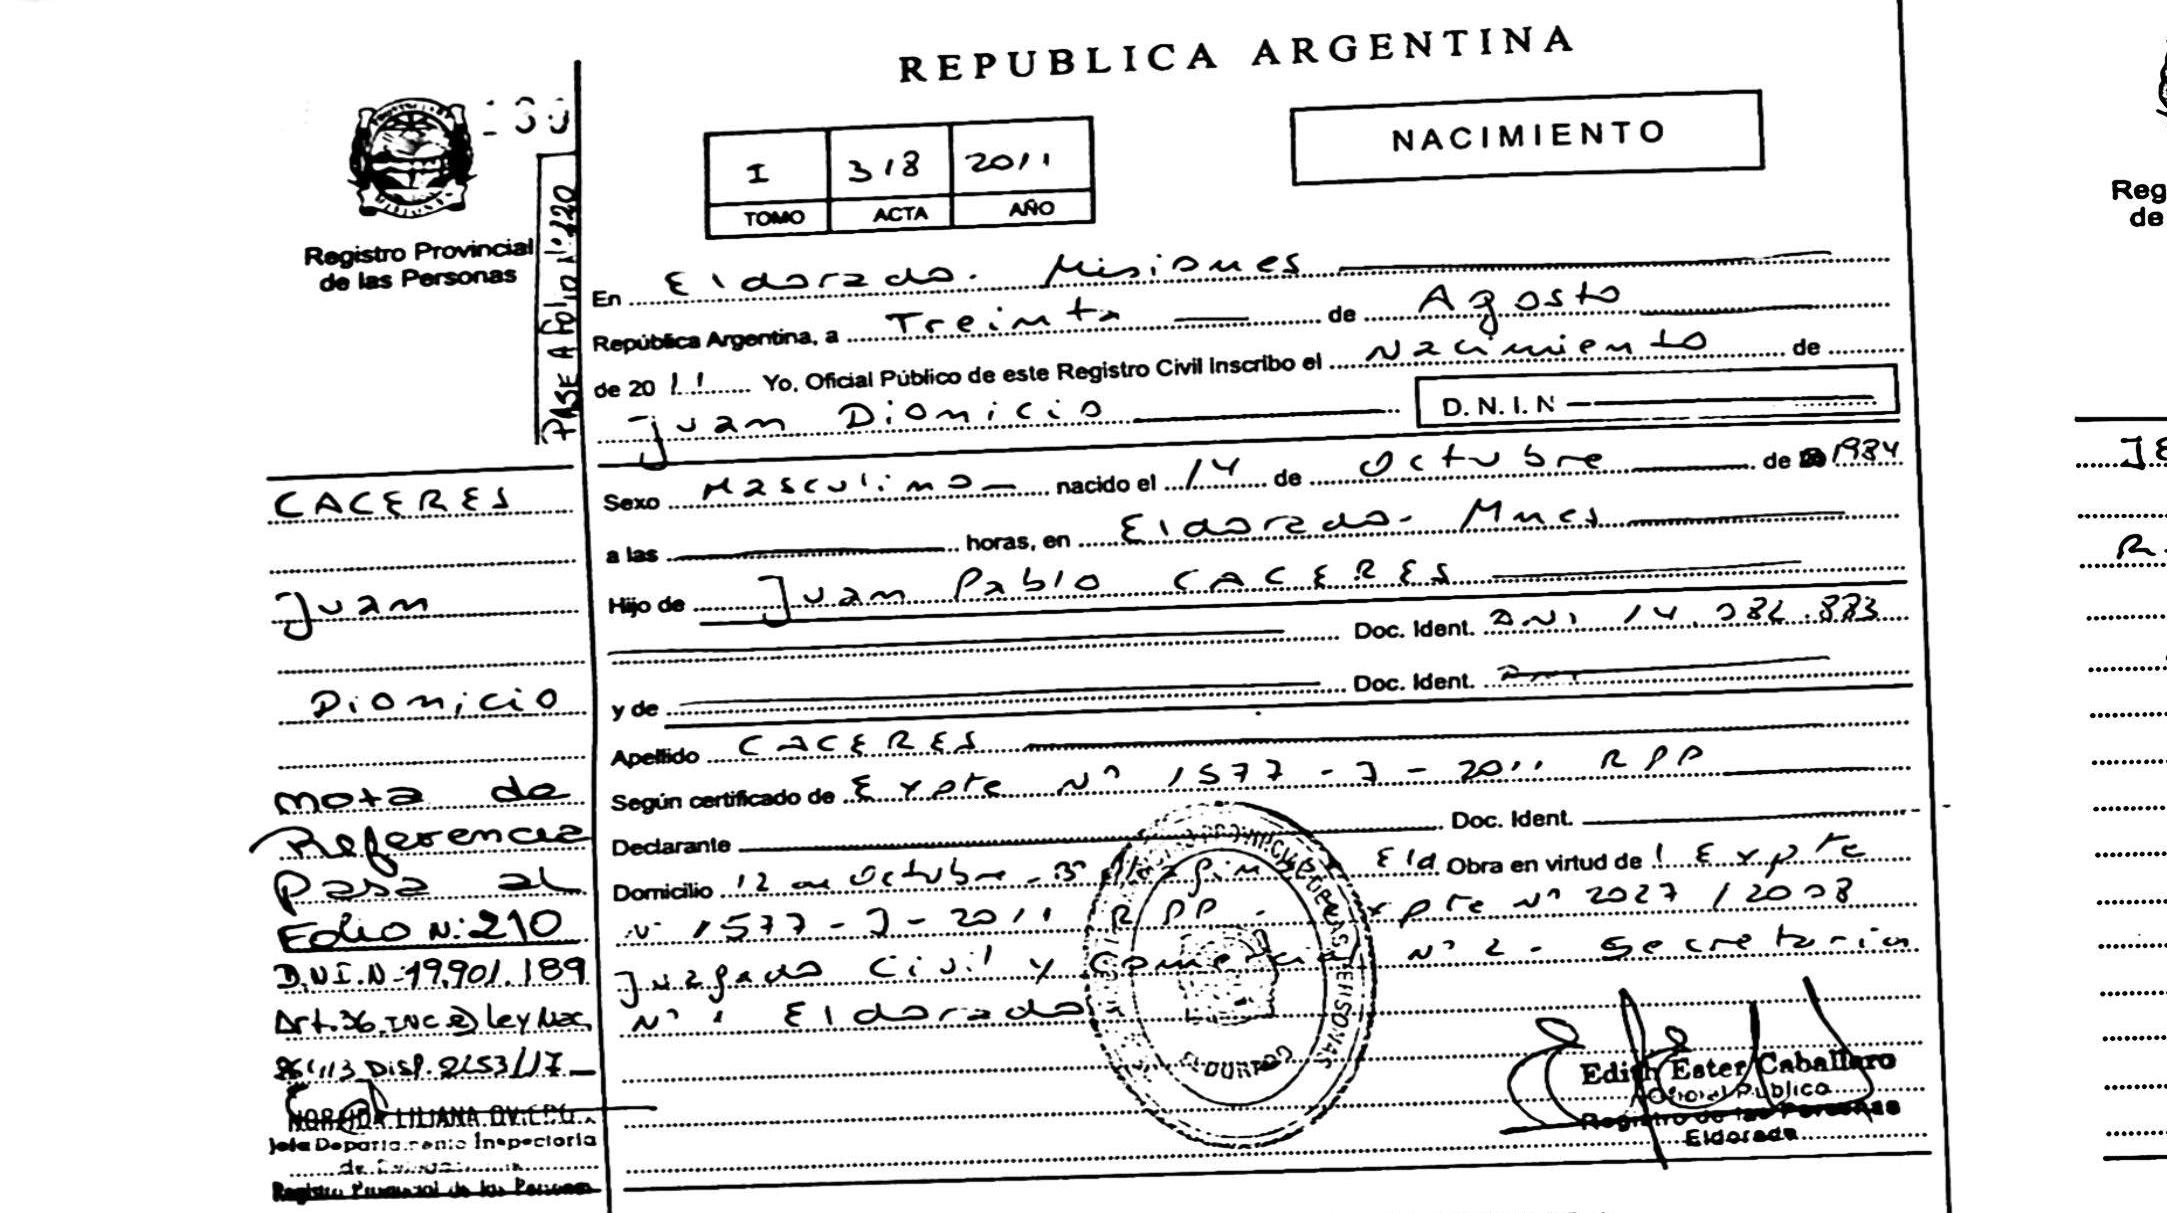 REPUBLICA ARGENTINA
NACIMIENTO
I 318 2011
TOMO ACTA AÑO
Registro Provincial
de las Personas
PASE A Folio N° 220
En Eldorado. Misiones
República Argentina, a Treinta de Agosto
de 2011 Yo, Oficial Público de este Registro Civil Inscribo el Nacimiento de
Juan Dionicio D. N. I. N
Sexo Masculino nacido el 14 de Octubre de 1984
a las horas, en Eldorado- Mnes
Hijo de Juan Pablo CACERES
Doc. Ident. DNI 14.082.883
y de Doc. Ident.
Apellido CACERES
Según certificado de Expte N° 1577 - J - 2011 RPP
Declarante Doc. Ident.
Domicilio 12 de Octubre - Eld. Obra en virtud de Expte
N° 1577 - J - 2011 RPP - Expte N° 2027 / 2008
Juzgado Civil y Comercial N° 2 - Secretaria
N° 1 Eldorado
CACERES
Juan
Dionicio
nota de
Referencia
Pasa al
Folio N: 210
D.N.I.N-19.901.189
Art. 36, INC Ley Nac.
DISP. 2153/17
LILIANA
Registro Provincial de las Personas
Edith Ester Caballero
Oficial Público
Registro de las Personas
Eldorado
Reg
de